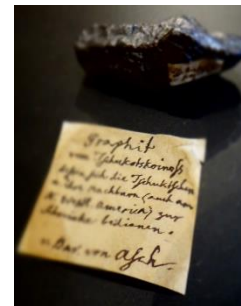 Graphit
vom Tschukotskoinoss
dessen sich die Tschuktschen
u. ihre Nachbarn (auch am
N. West America) zur
Schminke bedienen.
v. Bar. von Asch.